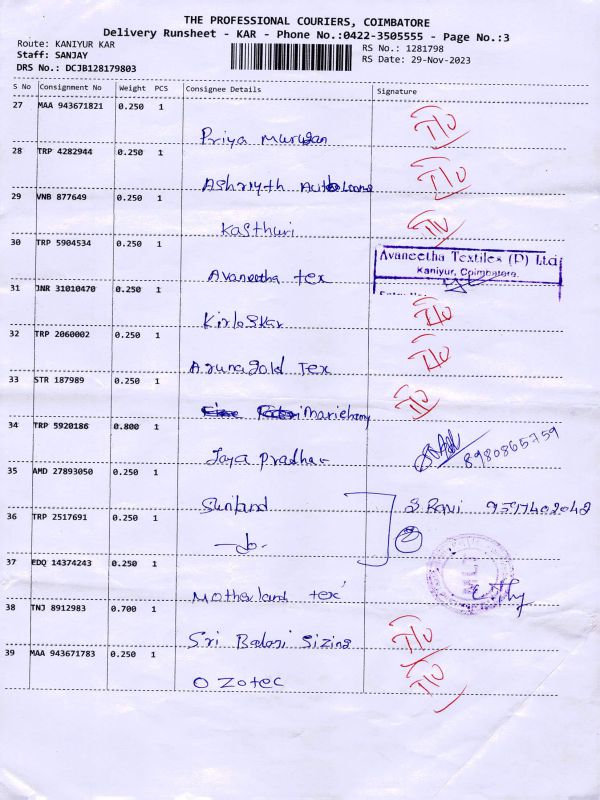 THE PROFESSIONAL COURIERS, COIMBATORE
Delivery Runsheet - KAR - Phone No.:0422-3505555 - Page No.:3
Route: KANIYUR KAR
RS No.: 1281798
Staff: SANJAY
RS Date: 29-Nov-2023
DRS No.: DCJB128179803
S No Consignment No Weight PCS Consignee Details Signature
27 MAA 943671821 0.250 1
Priya Murugan
28 TRP 4282944 0.250 1
Ashriyth Autoloans
29 VNB 877649 0.250 1
Kasthuri
30 TRP 5904534 0.250 1
Avaneetha Textiles (P) Ltd
Kaniyur, Coimbatore.
Avaneetha tex
31 JNR 31010470 0.250 1
Kirloskar
32 TRP 2060002 0.250 1
Arunagold Tex
33 STR 187989 0.250 1
34 TRP 5920186 0.800 1
Jaya Pradha
8980865759
35 AMD 27893050 0.250 1
Sunland
S. Rani
36 TRP 2517691 0.250 1
2
37 EDQ 14374243 0.250 1
Motherland tex
38 TNJ 8912983 0.700 1
Sri Balaji Sizing
39 MAA 943671783 0.250 1
Ozotec